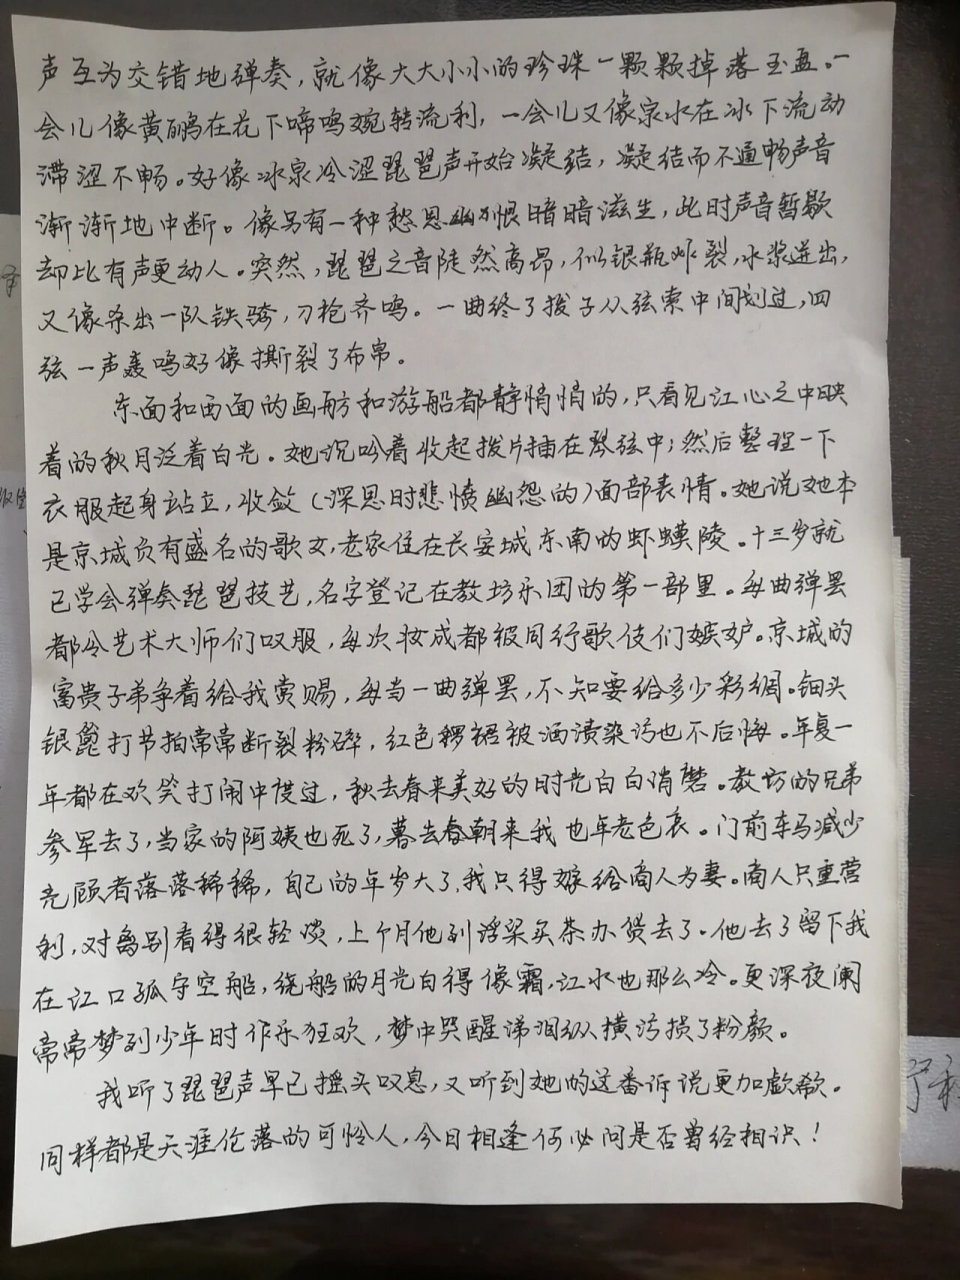 声互为交错地弹奏，就像大大小小的珍珠一颗颗掉落玉盘。一
会儿像黄鹂在花下啼鸣婉转流利，一会儿又像泉水在冰下流动
滞涩不畅。好像冰泉冷涩琵琶声开始凝结，凝结而不通畅声音
渐渐地中断。像另有一种愁思幽恨暗暗滋生，此时声音暂歇
却比有声更动人。突然，琵琶之音陡然高昂，似银瓶炸裂，水浆迸出，
又像杀出一队铁骑，刀枪齐鸣。一曲终了拨子从弦索中间划过，四
弦一声轰鸣好像撕裂了布帛。
东面和西面的画舫和游船都静悄悄的，只看见江心之中映
着的秋月泛着白光。她沉吟着收起拨片插在琴弦中；然后整理一下
衣服起身站立，收敛（深思时悲愤幽怨的）面部表情。她说她本
是京城负有盛名的歌女，老家住在长安城东南的虾蟆陵。十三岁就
已学会弹奏琵琶技艺，名字登记在教坊乐团的第一部里。每曲弹罢
都令艺术大师们叹服，每次妆成都被同行歌伎们嫉妒。京城的
富贵子弟争着给我赏赐，每当一曲弹罢，不知要给多少彩绸。钿头
银篦打节拍常常断裂粉碎，红色裙裾被酒渍染污也不后悔。年复一
年都在欢笑打闹中度过，秋去春来美好的时光白白消磨。教坊的兄弟
参军去了，当家的阿姨也死了，暮去春朝来我也年老色衰。门前车马减少
光顾者落落稀稀，自己的年岁大了，我只得嫁给商人为妻。商人只重营
利，对离别看得很轻淡，上个月他到浮梁买茶办货去了。他去了留下我
在江口孤守空船，绕船的月光白得像霜，江水也那么冷。更深夜阑
常常梦到少年时作乐狂欢，梦中哭醒涕泪纵横污损了粉颜。
我听了琵琶声早已摇头叹息，又听到她的这番诉说更加歔欷。
同样都是天涯伦落的可怜人，今日相逢何必问是否曾经相识！